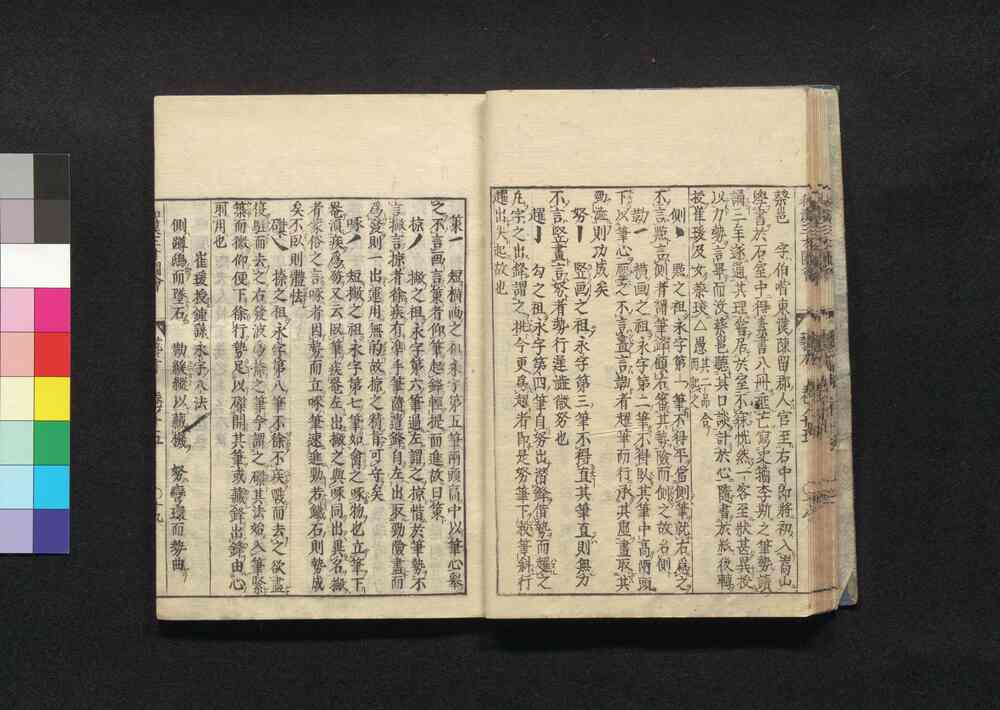 蔡邕 字伯喈東漢陳留郡人官至右中郎將初入嵩山
學書於石室中得素書八册 史籀李斯之筆勢讀
誦三年遂通其理嘗居於室不寐恍然一客至狀甚異授
以力勢言畢而没蔡邕聽其口談計於心隨書於紙後轉
授崔瑗及文 蔡琰△愚
側 點之祖永字第一筆不得平當側筆就右爲之
不言點言側者謂筆鋒顧右 其勢險而側之故名側
勒一 横画之祖永字第二筆不得臥其筆中高兩頭
下以筆心壓之不言畫言勒者趯筆而行承其 畫取其
勁澁則功成矣
努丨 竪画之祖永字第三筆不得直其筆直則無力
不言竪畫言努者勢行遲澁微努也
趯亅 勾之祖永字第四筆自努出潜鋒借勢而趯之
凡字之出鋒謂之挑今更爲趯者即是努筆下殺筆斜行
趯出失起故也
策一 短横画之祖永字第五筆兩頭高中以筆心擧
之不言画言策者仰筆起鋒輕提而進故曰策
掠ノ 撇之祖永字第六筆過左謂之掠惜於筆勢不
言撇言掠者徐疾有準手筆隨遣鋒自左出取勁險盡而
爲發則一出運用無的故掠之精旨可守矣
啄ノ 短撇之祖永字第七筆如禽之啄物也立筆下
罨須疾爲勢又云臥筆疾罨左出撇之與啄同出異名撇
者蒙俗之言啄者因勢而立啄筆速進勁若鐵石則勢成
矣不臥則體怯
磔乀 捺之祖永字第八筆不徐不疾戰而去之欲盡
復駐而去之右發波爲捺之筆今謂之磔其法始入筆緊
築而微仰便下徐行勢足以磔開其筆或藏鋒出鋒由心
所用也
崔瑗授鍾繇永字八法
側蹲鴟而墜石 勒緩縱以藏機 努彎環而勢曲